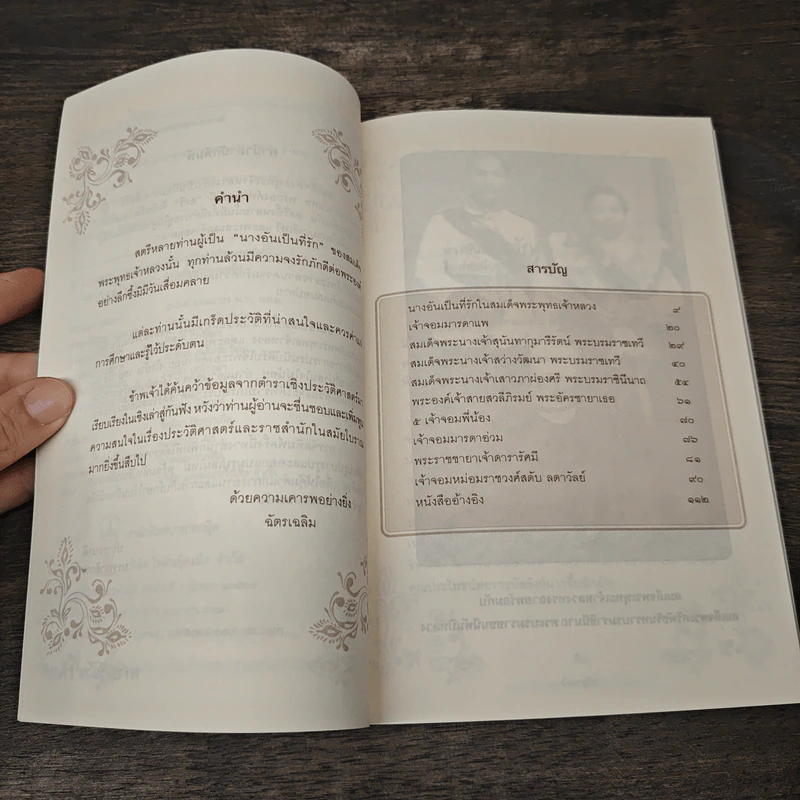 คำนำ
สตรีหลายท่านผู้เป็น "นางอันเป็นที่รัก" ของสมเด็จ
พระพุทธเจ้าหลวงนั้น ทุกท่านล้วนมีความจงรักภักดีต่อพระองค์
อย่างลึกซึ้งมิมีวันเสื่อมคลาย
แต่ละท่านนั้นมีเกร็ดประวัติที่น่าสนใจและควรค่าแก่
การศึกษาและรู้ไว้ประดับตน
ข้าพเจ้าได้ค้นคว้าข้อมูลจากตำราเชิงประวัติศาสตร์
เรียบเรียงในเชิงเล่าสู่กันฟัง หวังว่าท่านผู้อ่านจะชื่นชอบและเพิ่มพูน
ความสนใจในเรื่องประวัติศาสตร์และราชสำนักในสมัยโบราณ
มากยิ่งขึ้นสืบไป
ด้วยความเคารพอย่างยิ่ง
ฉัตรเฉลิม
สารบัญ
นางอันเป็นที่รักในสมเด็จพระพุทธเจ้าหลวง ๙
เจ้าจอมมารดาแพ ๒๐
สมเด็จพระนางเจ้าสุนันทากุมารีรัตน์ พระบรมราชเทวี ๒๙
สมเด็จพระนางเจ้าสว่างวัฒนา พระบรมราชเทวี ๔๐
สมเด็จพระนางเจ้าเสาวภาผ่องศรี พระบรมราชินีนาถ ๕๔
พระองค์เจ้าสายสวลีภิรมย์ พระอัครชายาเธอ ๖๑
๕ เจ้าจอมพี่น้อง ๗๐
เจ้าจอมมารดาอ่วม ๗๖
พระราชชายาเจ้าดารารัศมี ๘๑
เจ้าจอมหม่อมราชวงศ์สดับ ลดาวัลย์ ๙๐
หนังสืออ้างอิง ๑๑๒